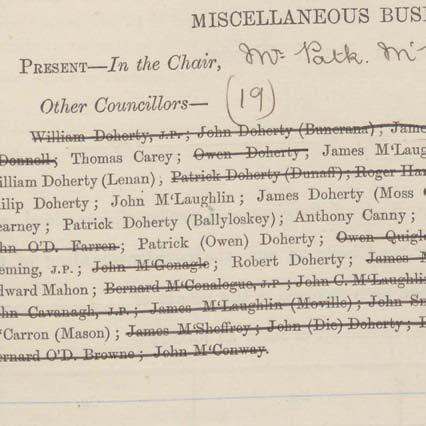 MISCELLANEOUS BUSI
PRESENT—In the Chair, Mr. Patk. Mc
Other Councillors— (19)
William Doherty, J.P.; John Doherty (Buncrana); Jame
Donnell; Thomas Carey; Owen Doherty; James M'Laug
William Doherty (Lenan); Patrick Doherty (Dunaff); Roger Har
hilip Doherty; John M'Laughlin; James Doherty (Moss
earney; Patrick Doherty (Ballyloskey); Anthony Canny;
hn O'D. Farren; Patrick (Owen) Doherty; Owen Quigle
eming, J.P.; John M'Gonagle; Robert Doherty; James M
dward Mahon; Bernard M'Conalogue, J.P.; John C. M'Laughlin
hn Cavanagh, J.P.; James M'Laughlin (Moville); John Sm
'Carron (Mason); James M'Sheffrey; John (Die) Doherty;
ernard O'D. Browne; John M'Conway.